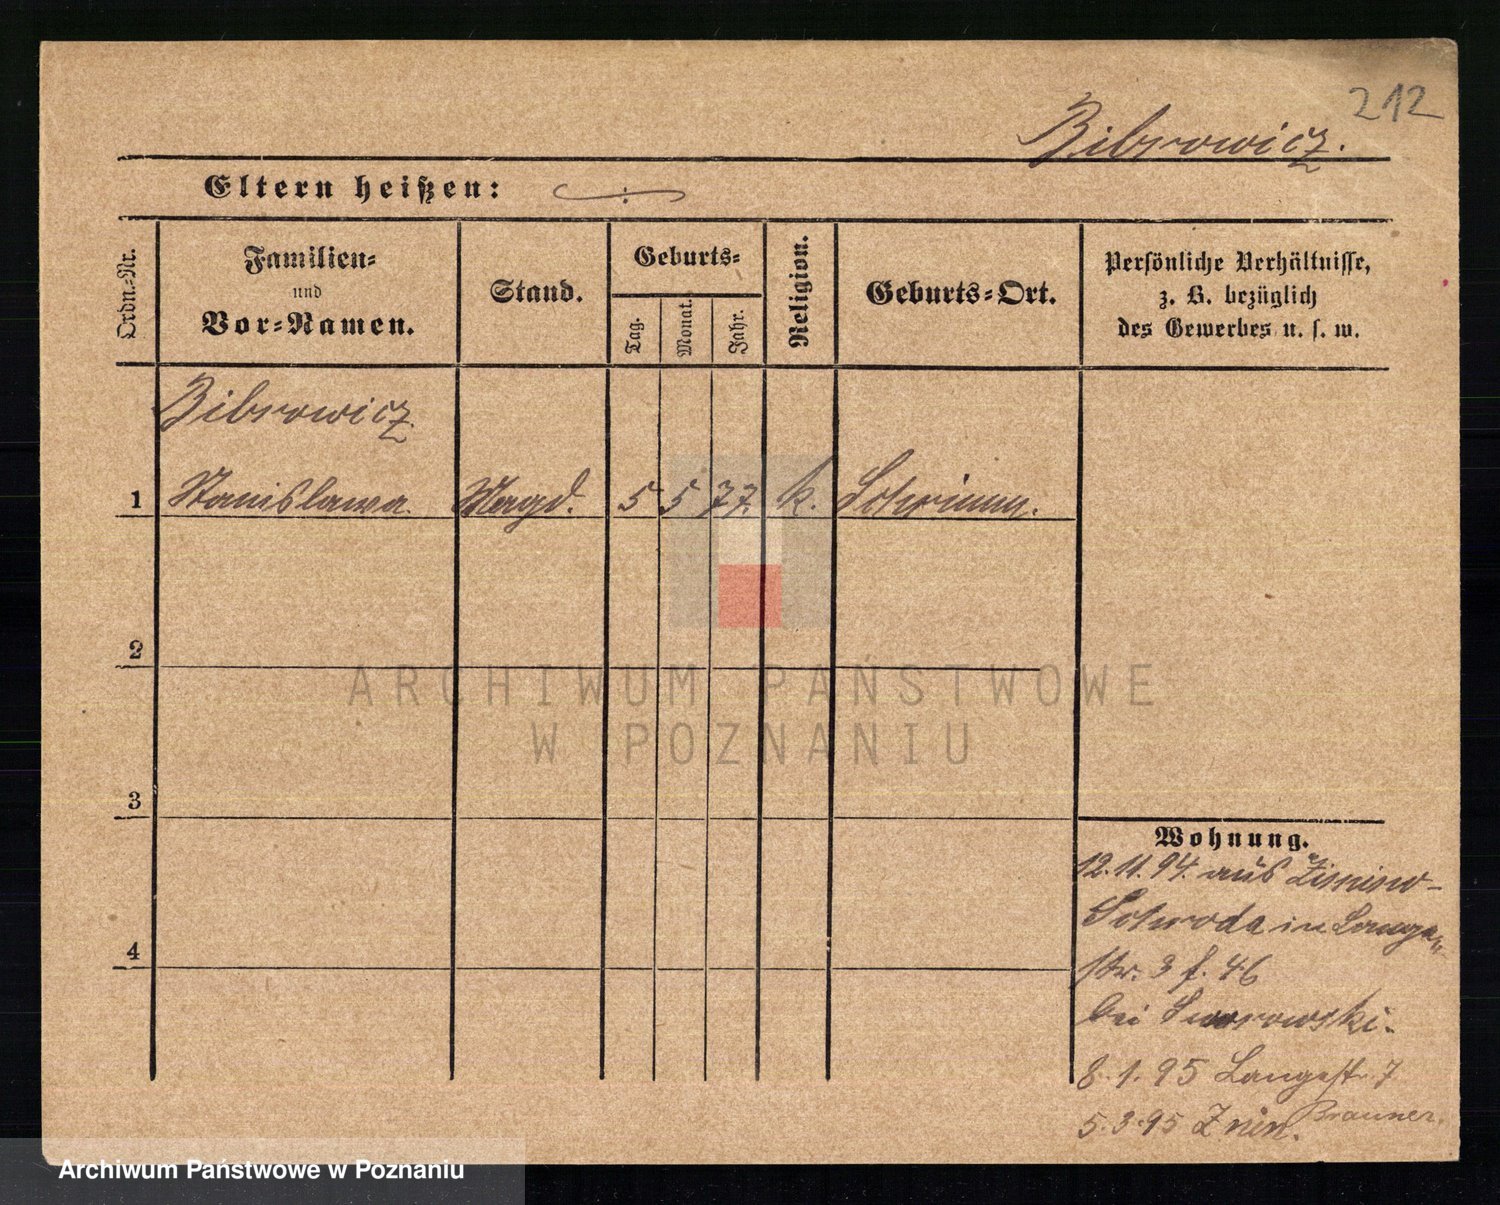 212
Bibrowicz.
Eltern heißen:
Ordn.-Nr.
Familien-
und
Vor-Namen.
Stand.
Geburts-
Tag.
Monat.
Jahr.
Religion.
Geburts-Ort.
Persönliche Verhältnisse,
z. B. bezüglich
des Gewerbes u. s. w.
Bibrowicz
1 Stanislawa. Magd. 5 5 77. k. Schrimm.
2
3
4
Wohnung.
12.11.94. aus
Schroda in Lange
str. 3 f. 46
bei
8.1.95 Langestr. 7
Brauner.
5.3.95 Znin.
ARCHIWUM PAŃSTWOWE
W POZNANIU
Archiwum Państwowe w Poznaniu